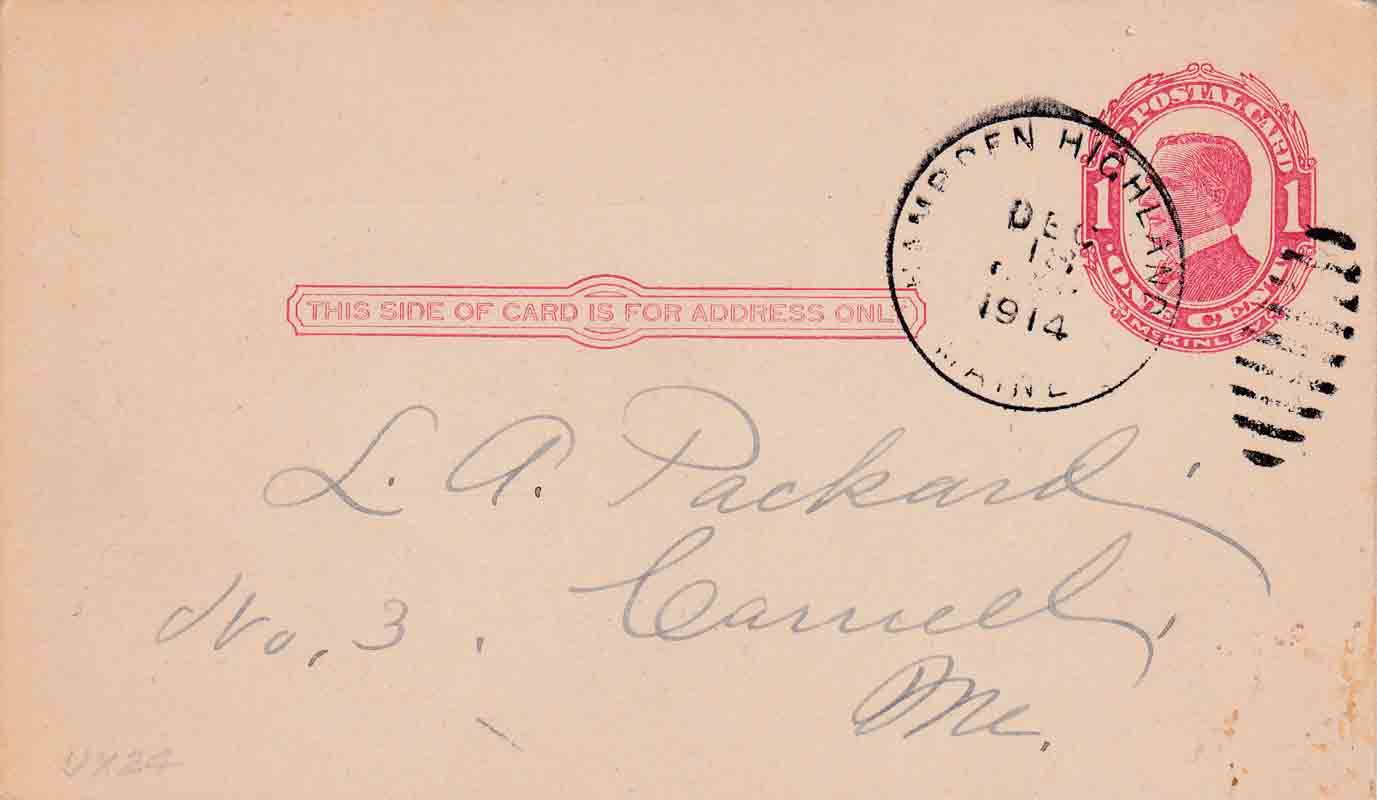 POSTAL CARD
1 1
ONE CENT
McKINLEY
HAMPDEN HIGHLANDS
DEC
1914
MAINE
THIS SIDE OF CARD IS FOR ADDRESS ONLY
L. A. Packard
Carmel,
No. 3.
Me.
UX24